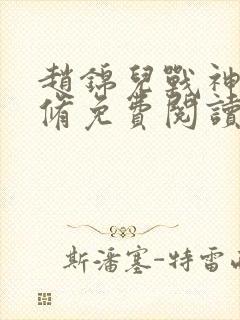 趙錦兒戰神
脩免費閱讀
斯潘塞-特雷西